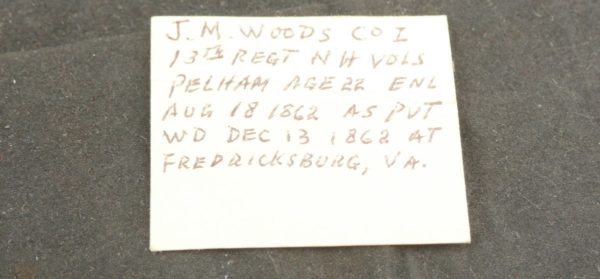 J. M. WOODS CO I
13TH REGT N H VOLS
PELHAM AGE 22 ENL
AUG 18 1862 AS PVT
WD DEC 13 1862 AT
FREDRICKSBURG, VA.